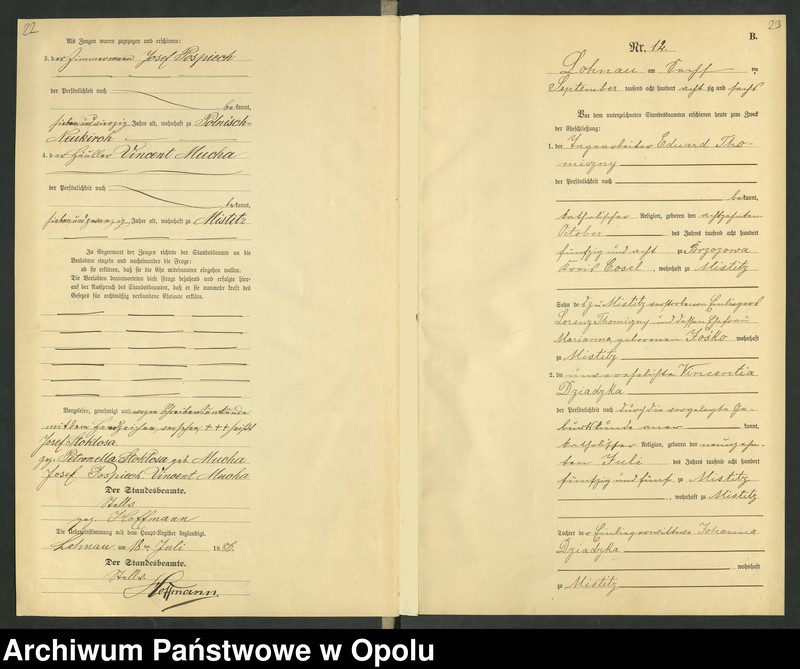 22
Als Zeugen waren zugezogen und erschienen:
3. der Zimmermann Josef Pospiech
der Persönlichkeit nach
bekannt,
siebenundvierzig Jahre alt, wohnhaft zu Polnisch-
Neukirch
4. der Häusler Vincent Mucha
der Persönlichkeit nach
bekannt,
siebenundzwanzig Jahre alt, wohnhaft zu Mistitz
In Gegenwart der Zeugen richtete der Standesbeamte an die
Verlobten einzeln und nacheinander die Frage:
ob sie erklären, daß sie die Ehe miteinander eingehen wollen.
Die Verlobten beantworteten diese Frage bejahend und erfolgte hier-
auf der Ausspruch des Standesbeamten, daß er sie nunmehr kraft des
Gesetzes für rechtmäßig verbundene Eheleute erkläre.
Vorgelesen, genehmigt und wegen Schreibensunkunde
mit dem Handzeichen versehen +++ heißt
Josef Stoklosa
gez. Petronella Stoklosa geb. Mucha
Josef Pospiech Vincent Mucha
Der Standesbeamte.
gez. Hoffmann
Die Uebereinstimmung mit dem Haupt-Register beglaubigt.
Lohnau am 18ten Juli 1886.
Der Standesbeamte.
Hoffmann
23
B.
Nr. 12.
Lohnau am
September tausend acht hundert achtzig und sechs
Vor dem unterzeichneten Standesbeamten erschienen heute zum Zweck
der Eheschließung:
1. der Eduard Tho-
migny
der Persönlichkeit nach
bekannt,
katholischer Religion, geboren den achtzehnten
October des Jahres tausend acht hundert
fünfzig und acht zu Brzozowa
Kreis Cosel, wohnhaft zu Mistitz
Sohn des zu Mistitz verstorbenen Einliegers
Lorenz Thomigny und dessen Ehefrau
Marianna, geborenen Joško wohnhaft
zu Mistitz
2. die unverehelichte Vincentia
Dziadzka
der Persönlichkeit nach durch die vorgelegte Ge-
burtskunde aner kannt,
katholischer Religion, geboren den neunzehn-
ten Juli des Jahres tausend acht hundert
fünfzig und fünf zu Mistitz
, wohnhaft zu Mistitz
Tochter der Einliegerwittwe Johanna
Dziadzka
wohnhaft
zu Mistitz
Archiwum Państwowe w Opolu